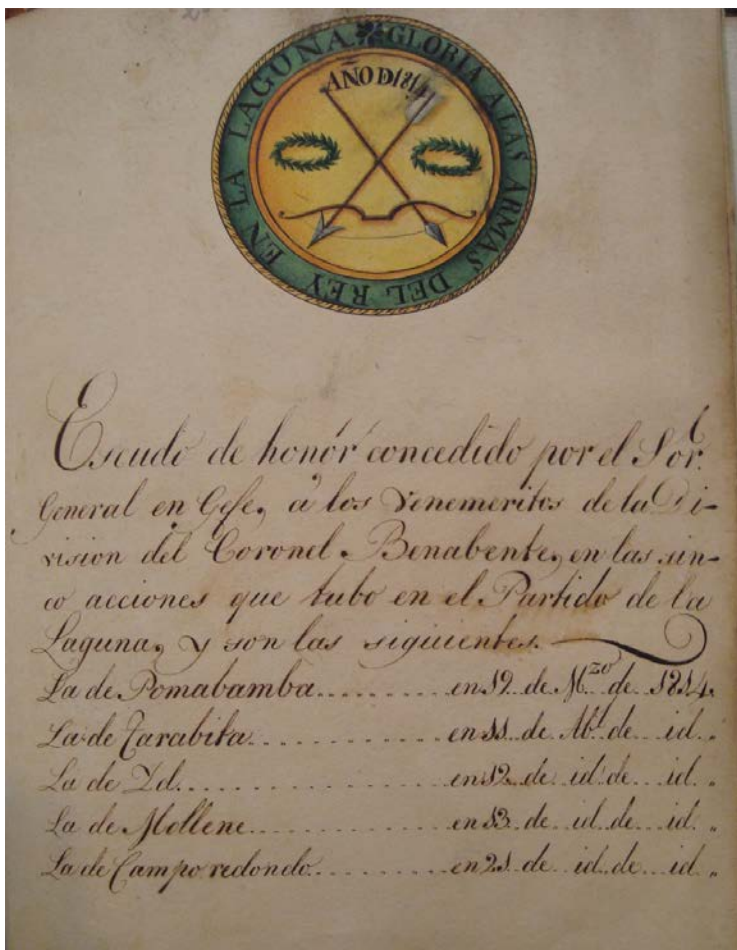 EN LA LAGUNA. GLORIA A LAS ARMAS DEL REY
AÑO D 1814
Escudo de honór concedido por el Sor.
General en Gefe, á los Venemeritos de la Di-
vision del Coronel Benabente, en las sin-
co acciones que tubo en el Partido de la
Laguna, y son las siguientes.
La de Pomabamba......... en 19. de Mzo de 1814.
La de Tarabita............... en 11. de Abl. de id.,
La de Yd....................... en 12. de id. de id. „
La de Mollene............... en 13. de id. de id. „
La de Campo redondo......... en 21 de id. de id. „